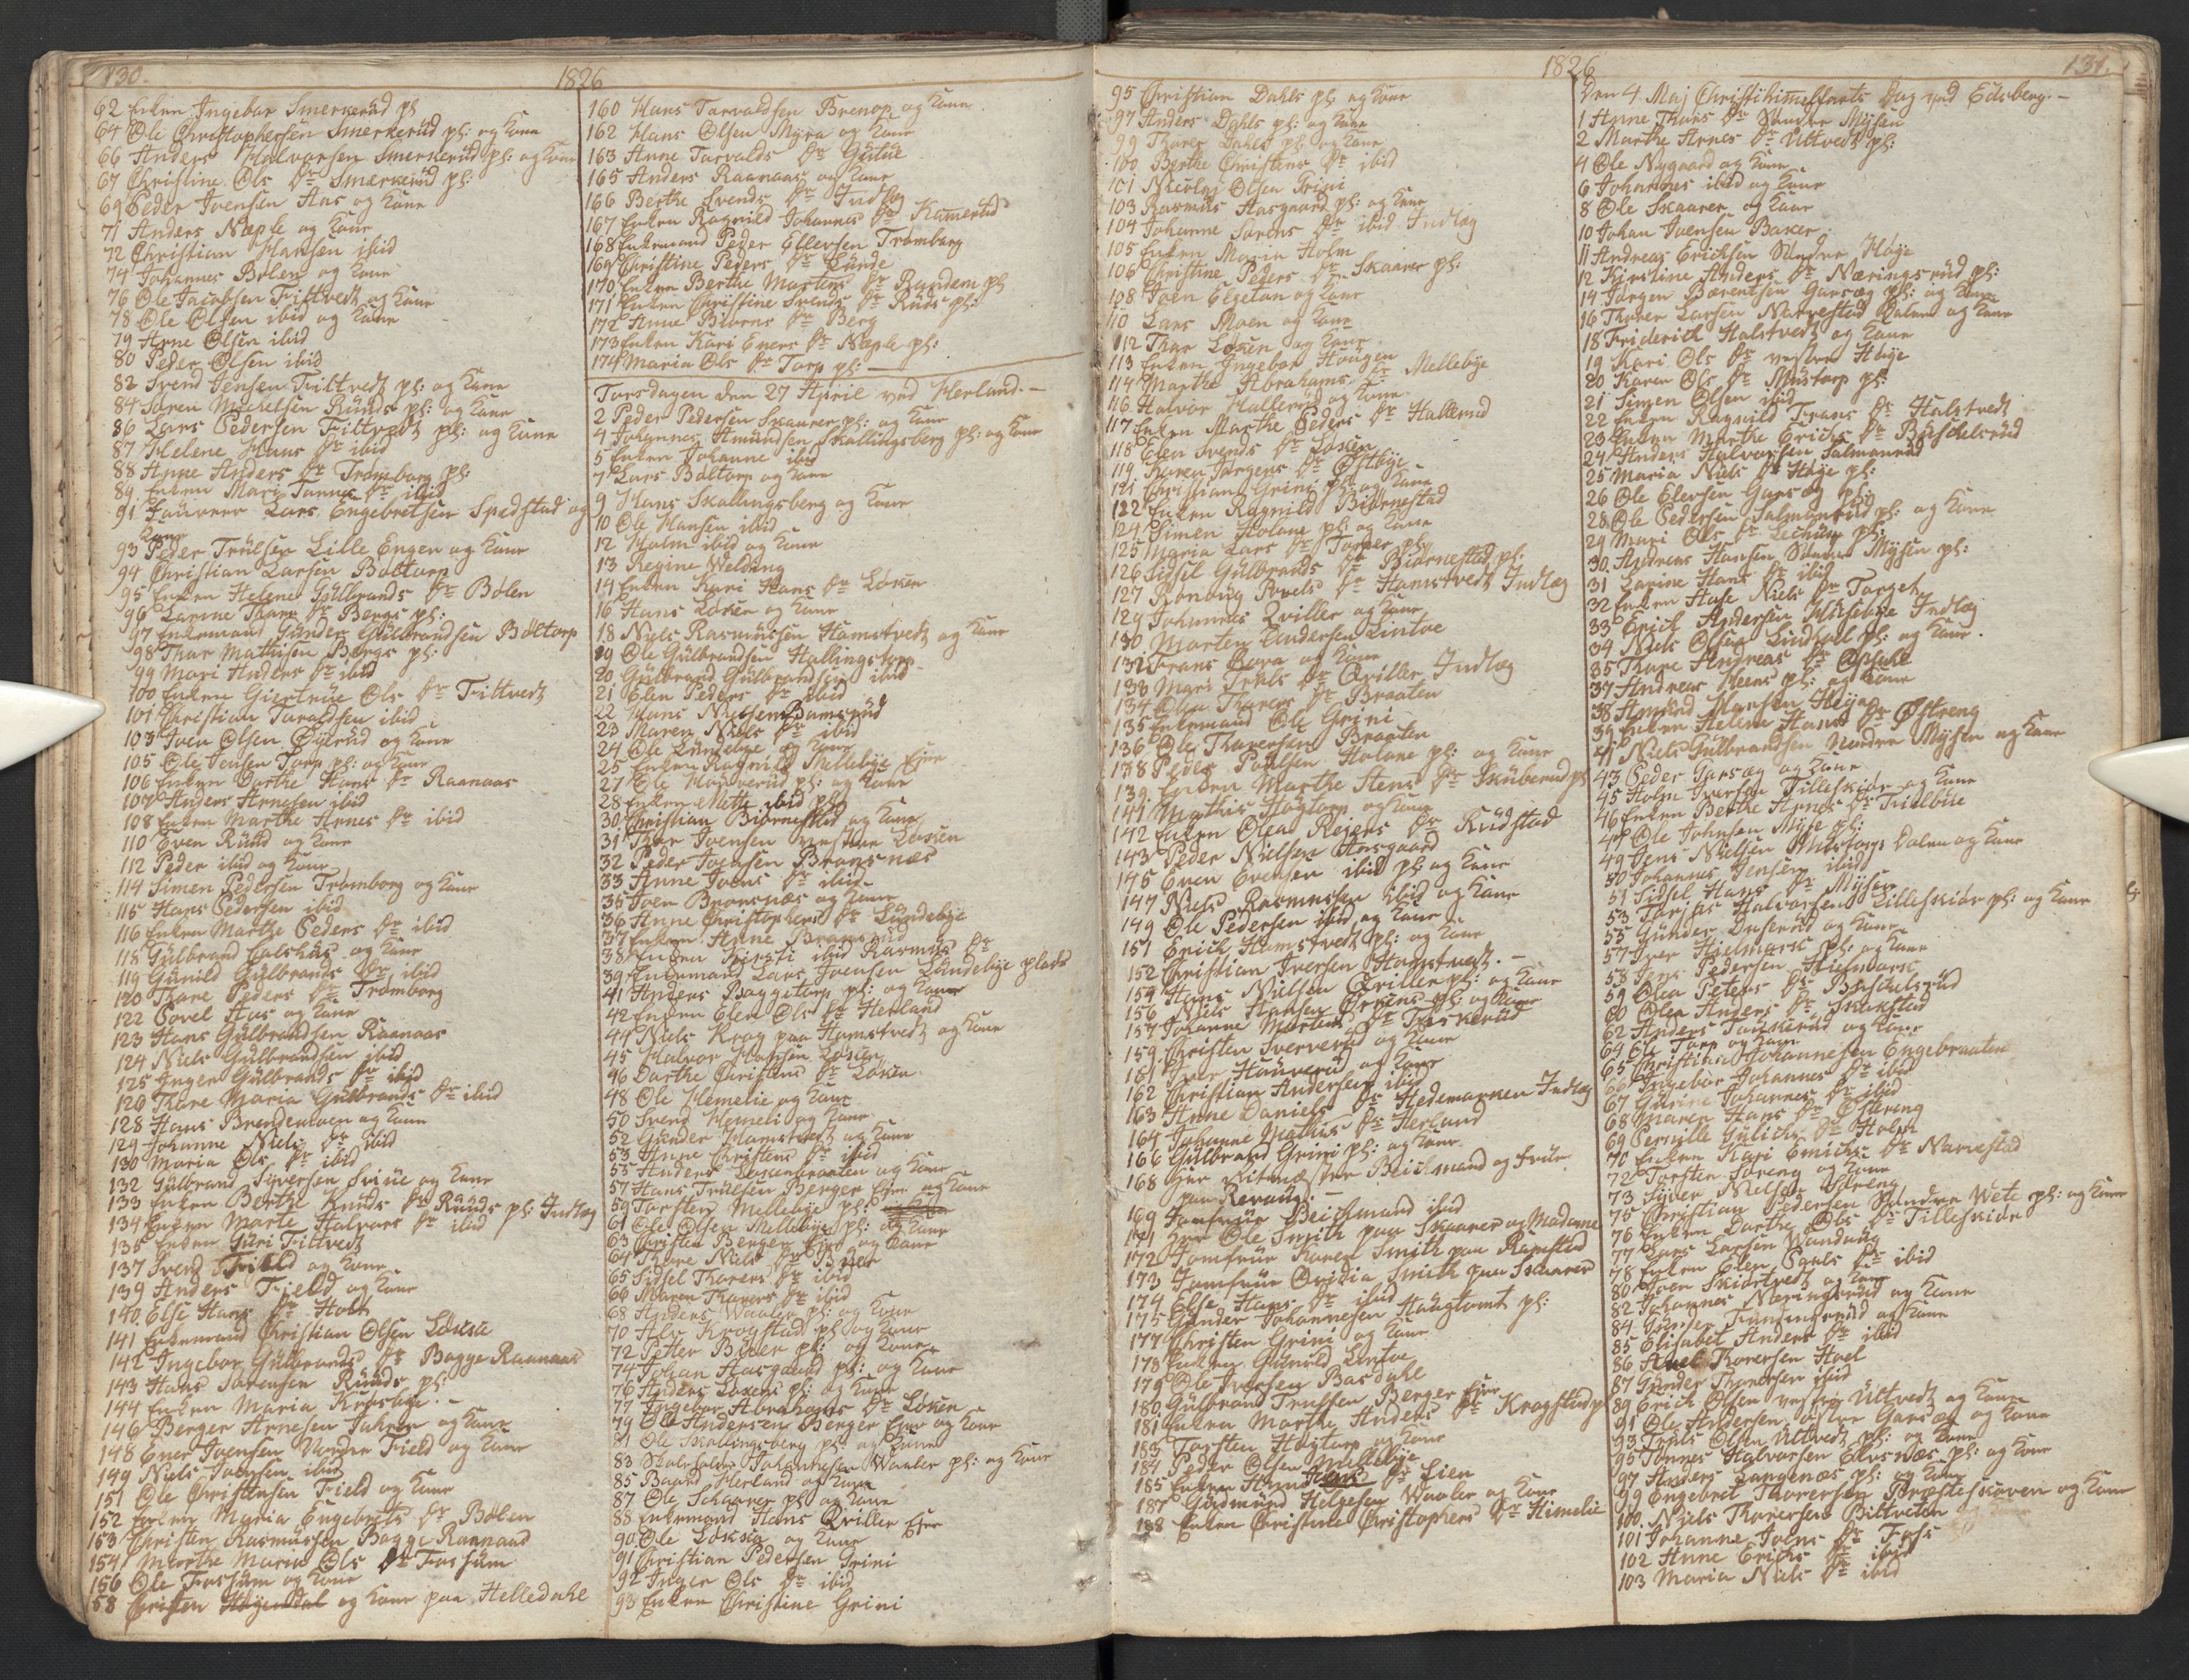 130.
1826
62 Enken Ingebor Smerkerud pl
64 Ole Christophersen Smerkerud pl: og Kone
66 Anders Halvorsen Smerkerud pl: og Kone
67 Christine Ols Dr Smærkerud pl:
69 Peder Joensen Aas og Kone
71 Anders Næple og Kone
72 Christian Hansen ibid
74 Johannes Bølen og Kone
76 Ole Jacobsen Fittvedt og Kone
78 Ole Olsen ibid og Kone
79 Arne Olsen ibid
80 Peder Olsen ibid
82 Svend Jensen Fittvedt pl: og Kone
84 Søren Michelsen Runds pl: og Kone
86 Lars Pedersen Fittvedt pl: og Kone
87 Helene Hans Dr ibid
88 Anne Anders Dr Trømborg pl:
89 Enken Mari Dr ibid
91 Lars Engebretsen Spedstad og
Kone
93 Peder Truelsen Lille Engen og Kone
94 Christian Larsen Boltorp
95 Enken Helene Gulbrands Dr Bølen
96 Larine Thore Dr Bergs pl:
97 Enkemand Gunder Gulbrandsen Boltorp
98 Thor Mathisen Bergs pl:
99 Mari Anders Dr ibid
100 Enken Giertrue Ols Dr Fittvedt
101 Christian Taraldsen ibid
103 Iver Olsen Øyerud og Kone
105 Ole Jensen Torp pl: og Kone
106 Enken Dorthe Hans Dr Raanaas
107 Anders Arnesen ibid
108 Enken Marthe Arnes Dr ibid
110 Even Rund og Kone
112 Peder ibid og Kone
114 Simen Pedersen Trømborg og Kone
115 Hans Pedersen ibid
116 Enken Marthe Peders Dr ibid
118 Gulbrand og Kone
119 Gunild Gulbrands Dr ibid
120 Thore Peders Dr Trømborg
122 Povel Aas og Kone
123 Hans Gulbrandsen Raanaas
124 Niels Gulbrandsen ibid
125 Inger Gulbrands Dr ibid
126 Thore Maria Gulbrands Dr ibid
128 Hans Brendemoen og Kone
129 Johanne Niels Dr ibid
130 Maria Ols Dr ibid
132 Gulbrand Syversen og Kone
133 Enken Berthe Knuds Dr Runds pl: Indlæg
134 Enken Marte Halvors Dr ibid
135 Enken Guri Fittvedt
137 Svend Field og Kone
139 Anders Field og Kone
140 Else Hans Dr Holt
141 Enkemand Christian Olsen Løken
142 Ingebor Gulbrands Dr Bøgge Raanaas
143 Hans Sørensen Runds pl:
144 Enken Maria
146 Berger Arnesen og Kone
148 Ener Joensen Nordre Field og Kone
149 Niels Joensen ibid
151 Ole Christensen Field og Kone
152 Enken Maria Engebrets Dr Bølen
153 Christen Rasmussen Bøgge Raanaas
154 Marthe Maria Ols Dr Fossum
156 Ole Fossum og Kone
58 Christen Høyendal og Kone paa Helledahl
160 Hans Torvaldsen Brenop og Kone
162 Hans Olsen Myra og Kone
163 Anne Torvalds Dr Gutue
165 Anders Raanaas og Kone
166 Berthe Svends Dr Indlæg
167 Enken Ragnild Johannes Dr Kamerud
168 Enkemand Peder Ellevsen Trømborg
169 Christine Peders Dr Lunde
170 Enken Berthe Martens Dr Randem pl
171 Enken Christine Svends Dr Ruds pl:
172 Anne Biørns Dr Berg
173 Enken Kari Eners Dr Næple pl:
174 Maria Ols Dr Torp pl:
Torsdagen den 27 April ved Herland.
2 Peder Pedersen Skaarer pl: og Kone
4 Johannes Amundsen Skallingsberg pl: og Kone
5 Enken Johanne ibid
7 Lars Boltorp og Kone
9 Hans Skallingsberg og Kone
10 Ole Hansen ibid
12 Holm ibid og Kone
13 Regine Welding
14 Enken Kari Hans Dr Løken
16 Hans Løken og Kone
18 Niels Rasmussen Hamstvedt og Kone
19 Ole Gulbrandsen Hallingstorp
20 Gulbrand Gulbrandsen ibid
21 Elen Peders Dr ibid
22 Hans Nielsen Bamsrud
23 Maren Niels Dr ibid
24 Ole Lundebye og Kone
25 Enken Ragnild Mellebye Ejer
27 Ole pl: og Kone
28 Enken Mette ibid pl:
30 Christian Biørnestad og Kone
31 Thor Joensen Løken
32 Peder Joensen Bronsnæs
33 Anne Joens Dr ibid
35 Joen Bronsnæs og Kone
36 Anne Christophers Dr Lundebye
37 Enken Anne Bramsrud
38 Enken ibid Rasmus Dr
39 Enkemand Lars Joensen Lundebye plads
41 Anders Baggetorp pl: og Kone
42 Enken Elen Ols Dr Herland
44 Niels Krog paa Hamstvedt og Kone
45 Halvor Hansen Løken
46 Dorthe Christens Dr Løken
48 Ole Hemelie og Kone
50 Svend Hemeli og Kone
52 Gunder Hamstvedt og Kone
53 Anne Christens Dr ibid
55 Anders Løkenbraaten og Kone
57 Hans Truelsen Berger Ejer og Kone
59 Torsten Mellebye pl:
61 Ole Olsen Mellebye pl: og Kone
63 Christen Berger Ejer og Kone
64 Thore Niels Dr
65 Sidsel Thorers Dr ibid
66 Maren Thorers Dr ibid
68 Anders Waaler pl: og Kone
70 Krogstad pl: og Kone
72 Petter Bører pl: og Kone
74 Johan Aasgaard pl: og Kone
76 Anders Løkens pl: og Kone
77 Ingebor Abrahams Dr Løken
79 Ole Andersen Berger Ejer og Kone
81 Ole Skallingsberg pl: og Kone
83 Johannesen Waaler pl: og Kone
85 Baard Herland og Kone
87 Ole Skaarer pl: og Kone
88 Enkemand Hans Qviller Ejer
90 Ole Løken og Kone
91 Christian Pedersen Grini
92 Inger Ols Dr ibid
93 Enken Christine Grini
1826
131.
95 Christian Dahls pl: og Kone
97 Anders Dahls pl: og Kone
99 Thorer Dahls pl: og Kone
100 Berthe Christens Dr ibid
101 Nicolaj Olsen Grini
103 Rasmus Aasgaard pl: og Kone
104 Johanne Sørens Dr ibid Indlæg
105 Enken Marie Holm
106 Christine Peders Dr Skaarer pl:
108 Joen Elgetun og Kone
110 Lars Moen og Kone
112 Thor Løken og Kone
113 Enken Ingebor Hougen
114 Marthe Abrahams Dr Mellebye
116 Halvor Hallerud og Kone
117 Enken Marthe Peders Dr Hallerud
118 Elen Svends Dr Løken
119 Karen Jørgens Dr Østbye
121 Christian Grini pl: og Kone
122 Enken Ragnild Biørnestad
124 Simen Holane pl: og Kone
125 Maria Lars Dr Torper pl:
126 Sidsel Gulbrands Dr Biørnestad pl:
127 Rønnaug Povels Dr Hamstvedt Indlæg
129 Johannes Qviller og Kone
130 Morten Andersen Lintoe
132 Frans Rora og Kone
133 Mari Dr Qviller Indlæg
134 Olea Thorers Dr Braaten
135 Enkemand Ole Grini
136 Ole Thoresen Braaten
138 Peder Poulsen Holane pl: og Kone
139 Enken Marthe Stens Dr pl
141 Mathis Høytorp og Kone
142 Enken Olea Reiers Dr Rudstad
143 Peder Nielsen Aasgaard
145 Even Evensen ibid pl: og Kone
147 Niels Rasmussen ibid og Kone
149 Ole Pedersen ibid og Kone
151 Erich Hamstvedt pl: og Kone
152 Christian Iversen Hamstvedt.
154 Hans Nielsen Qviller pl: og Kone
156 Niels Hansen pl: og Kone
157 Johanne Mortens Dr Taskerud
159 Christen Sververud og Kone
161 Iver Hauverud og Kone
162 Christian Andersen ibid
163 Anne Daniels Dr Hedemarken Indlæg
164 Johanne Mathis Dr Herland
166 Gulbrand Grini pl: og Kone
168 Hr Ritmæster Beichmand og Frue
paa Revaug.
169 Jomfrue Beichmand ibid
171 Hr Ole Smith paa Skaarer og Madame
172 Jomfrue Karen Smith paa Ramstad
173 Jomfrue Ovidia Smith paa Skaarer
174 Else Hans Dr ibid
175 Gunder Johannesen Haugtomt pl:
177 Christen Grini og Kone
178 Enken Gunild Lintoe
179 Ole Iversen Basdahl
180 Gulbrand Truelsen Berger Ejer
181 Enken Marthe Anders Dr Krogstad pl
183 Torsten Høytorp og Kone
184 Peder Olsen Mellebye
185 Enken Anne Dr Lien
187 Gudmund Helgesen Waaler og Kone
188 Enken Christine Christophers Dr Himelie
Den 4 Maj Christihimmelfarts Dag ved Edsberg.
1 Anne Thors Dr Søndre Mysen
2 Marthe Arnes Dr Ultvedt pl:
4 Ole Nygaard og Kone
6 Johannes ibid og Kone
8 Ole Skaarer og Kone
10 Johan Joensen
11 Andreas Erichsen Søndre Høye
12 Kirstine Anders Dr Næringsrud pl:
14 Jørgen Bærentsen Garseg pl: og Kone
16 Thorer Larsen Narvestad Dalen og Kone
18 Friderich Halstvedt og Kone
19 Kari Ols Dr vestre Høye
20 Karen Ols Dr Mustorp pl:
21 Simen Olsen ibid
22 Enken Ragnild Frans Dr Halstvedt
23 Enken Marthe Erichs Dr Buschelsrud
24 Anders Halvorsen Salmonrud
25 Maria Niels Dr Høye pl:
26 Ole Elevsen Garseg pl:
28 Ole Pedersen Salmonrud pl: og Kone
29 Mari Ols Dr Lechum pl:
30 Andreas Hansen Søndre Mysen pl:
31 Larine Hans Dr ibid
32 Enken Niels Dr Torget
33 Erich Andersen Huseby Indlæg
34 Niels Olsen Lindhol pl: og Kone.
35 Thore Andreas Dr Opsahl
37 Andreas Moens pl: og Kone
38 Amund Hansen Høye
39 Enken Helene Hans Dr Østreng
41 Niels Gulbrandsen Nordre Mysen og Kone
43 Peder Garseg og Kone
45 Holm Iversen Lilleskiør og Kone
46 Enken Berthe Arnes Dr
47 Ole Johnsen Myre pl:
49 Jens Nielsen Mustorp Dalen og Kone
50 Johannes Jensen ibid
51 Sidsel Hans Dr Mysen
53 Halvorsen Lilleskiør pl: og Kone
55 Gunder Duserud og Kone
57 Iver Hielmark pl: og Kone
58 Jens Pedersen Hielmark
59 Olea Peters Dr Buschelsrud
60 Olea Anders Dr Skakstad
62 Anders Taraskerud og Kone
64 Ole Torp og Kone
65 Christian Johannesen Engebraaten
66 Ingebor Johannes Dr ibid
67 Gurine Johannes Dr ibid
68 Maren Hans Dr Østreng
69 Pernille Gulichs Dr Holm
70 Enken Kari Emichs Dr Narvestad
72 Torsten Føreng og Kone
73 Syver Nielsen Østreng
75 Christian Pedersen Søndre Wete pl: og Kone
76 Enken Dorthe Ols Dr Lilleskiør
77 Lars Larsen Wandaug
78 Enken Elen Pouls Dr ibid
80 Iver Skiørtvedt og Kone
82 Johannes Næringsrud og Kone
84 Gunder og Kone
85 Elisabet Anders Dr ibid
86 Thoresen Hoel
87 Gunder Thoresen ibid
89 Erich Olsen vestre Ultvedt og Kone
91 Ole Andersen østre Garseg og Kone
93 Truls Olsen Ultvedt pl: og Kone
95 Tønnes Halvorsen pl: og Kone
97 Anders Langenæs pl: og Kone
99 Engebret Thoresen Presteskoven og Kone
100 Niels Thoresen
101 Johanne Joens Dr Foss
102 Anne Erichs Dr ibid
103 Maria Niels Dr ibid